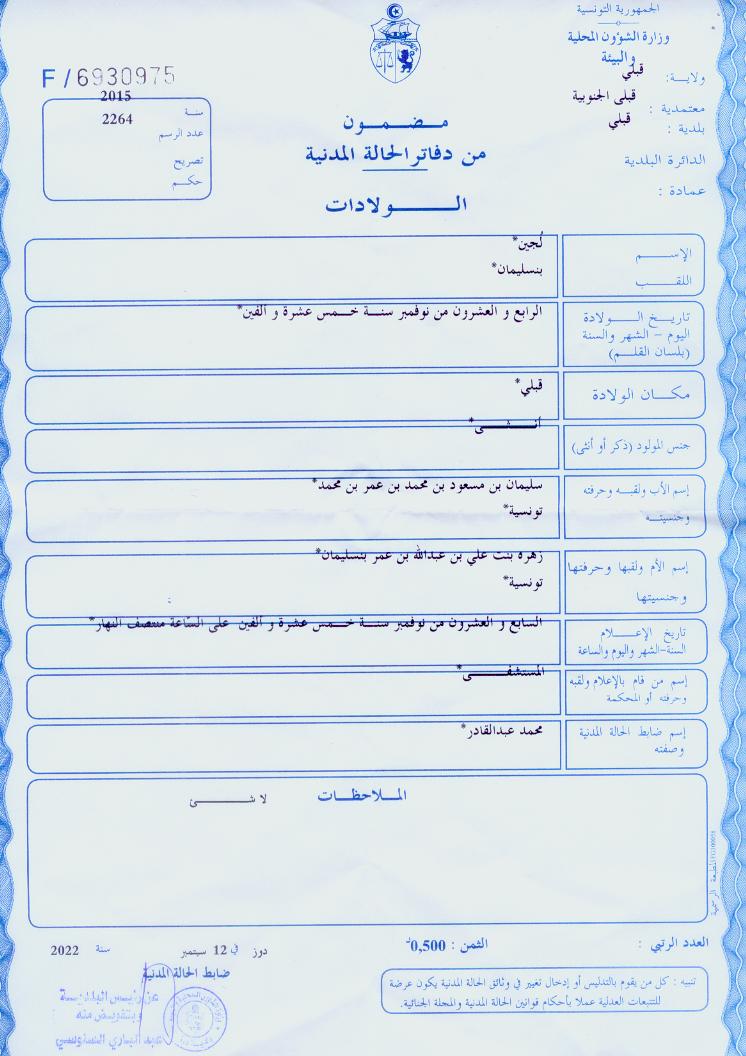 الجمهورية التونسية
وزارة الشؤون المحلية
والبيئة
ولاية: قبلي
معتمدية : قبلي الجنوبية
بلدية : قبلي
الدائرة البلدية
عمادة :
F / 6930975
سنة 2015
عدد الرسم 2264
تصريح
حكم
مضمون
من دفاتر الحالة المدنية
الولادات
الإسم لُجين*
اللقب بنسليمان*
تاريخ الولادة الرابع و العشرون من نوفمبر سنة خمس عشرة و ألفين*
اليوم - الشهر والسنة
(بلسان القلم)
مكان الولادة قبلي*
جنس المولود (ذكر أو أنثى) أنثى*
إسم الأب ولقبه وحرفته سليمان بن مسعود بن محمد بن عمر بن محمد*
وجنسيته تونسية*
إسم الأم ولقبها وحرفتها زهره بنت علي بن عبدالله بن عمر بنسليمان*
وجنسيتها تونسية*
تاريخ الإعلام السابع و العشرون من نوفمبر سنة خمس عشرة و ألفين على السّاعة منتصف النهار*
السنة-الشهر واليوم والساعة
إسم من قام بالإعلام ولقبه المستشفى*
وحرفته أو المحكمة
إسم ضابط الحالة المدنية محمد عبدالقادر*
وصفته
الملاحظات
لا شئ
المطبعة الرسمية
العدد الرتبي :
الثمن : 0,500د
دوز في 12 سبتمبر سنة 2022
ضابط الحالة المدنية
عن رئيس البلدية
وبتفويض منه
عبد الباري السنوسي
تنبيه : كل من يقوم بالتدليس أو إدخال تغيير في وثائق الحالة المدنية يكون عرضة
للتتبعات العدلية عملا بأحكام قوانين الحالة المدنية والمجلة الجنائية.